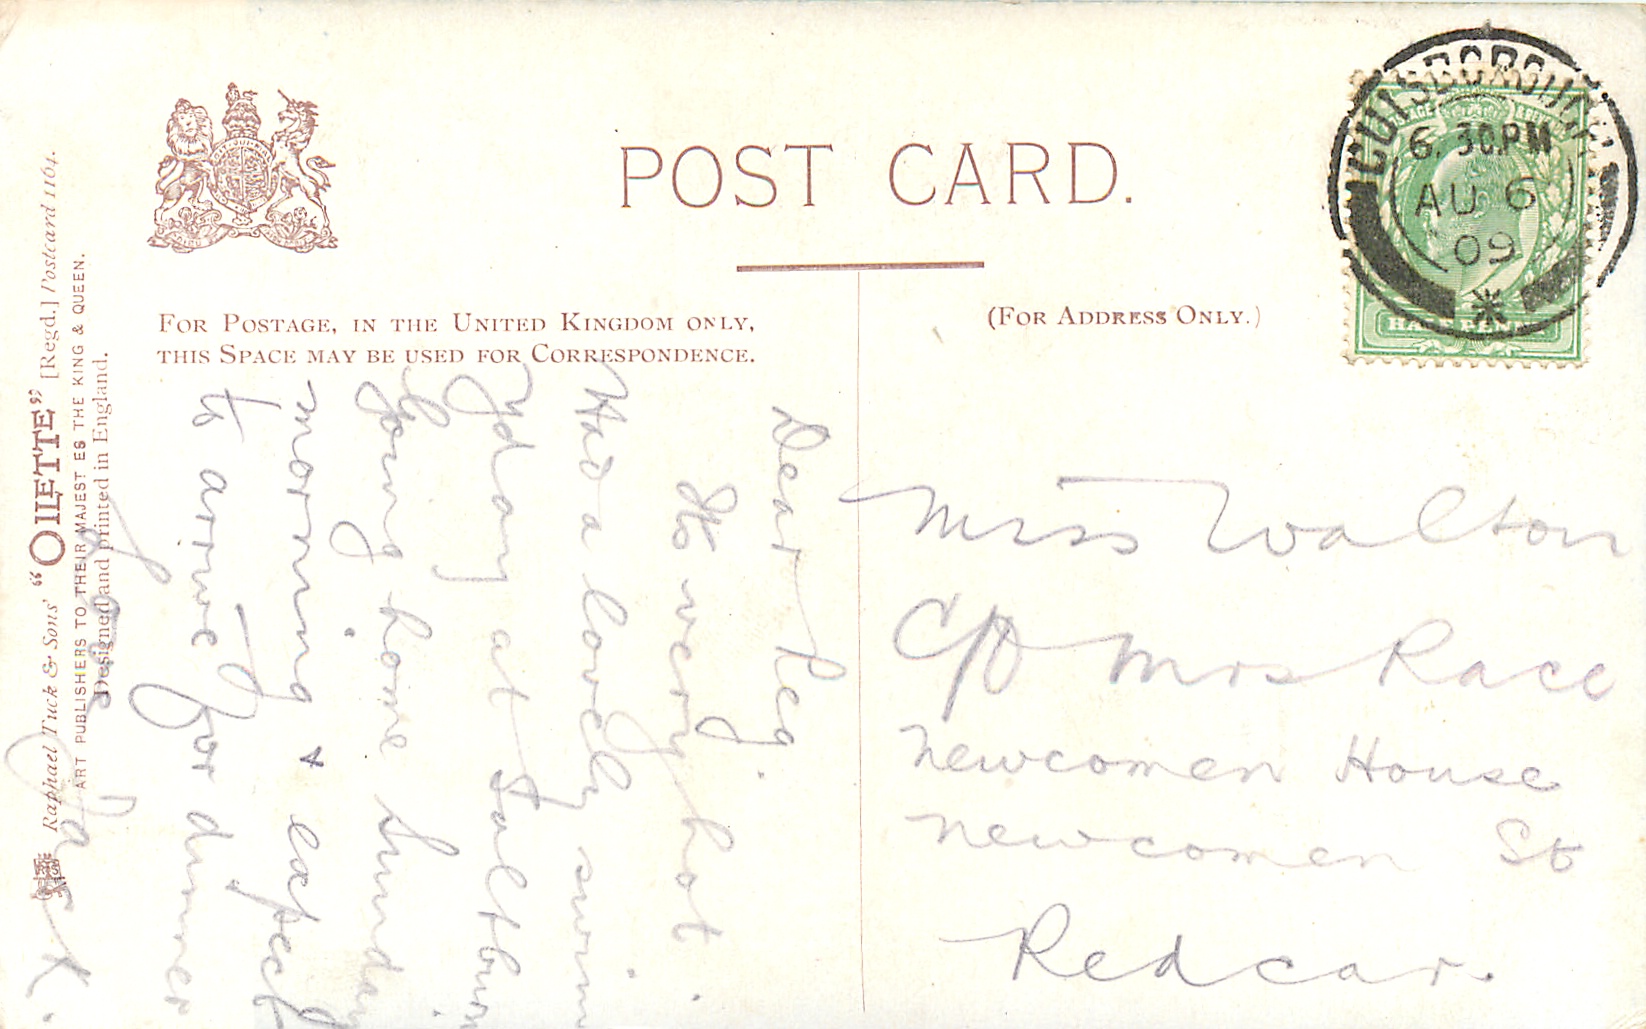 POST CARD.
FOR POSTAGE, IN THE UNITED KINGDOM ONLY,
THIS SPACE MAY BE USED FOR CORRESPONDENCE.
(FOR ADDRESS ONLY.)
GUISBOROUGH
6.30PM
AU 6
09
HALF PENNY
Dear Reg.
Its very hot.
Had a lovely swim
Yday at Saltburn
Going home Sunday
morning & expect
to arrive for dinner
Love Jack.
Miss Walton
C/o Mrs Race
Newcomen House
Newcomen St
Redcar.
Raphael Tuck & Sons' "OILETTE" [Regd.] Postcard 1164.
ART PUBLISHERS TO THEIR MAJESTIES THE KING & QUEEN.
Designed and printed in England.